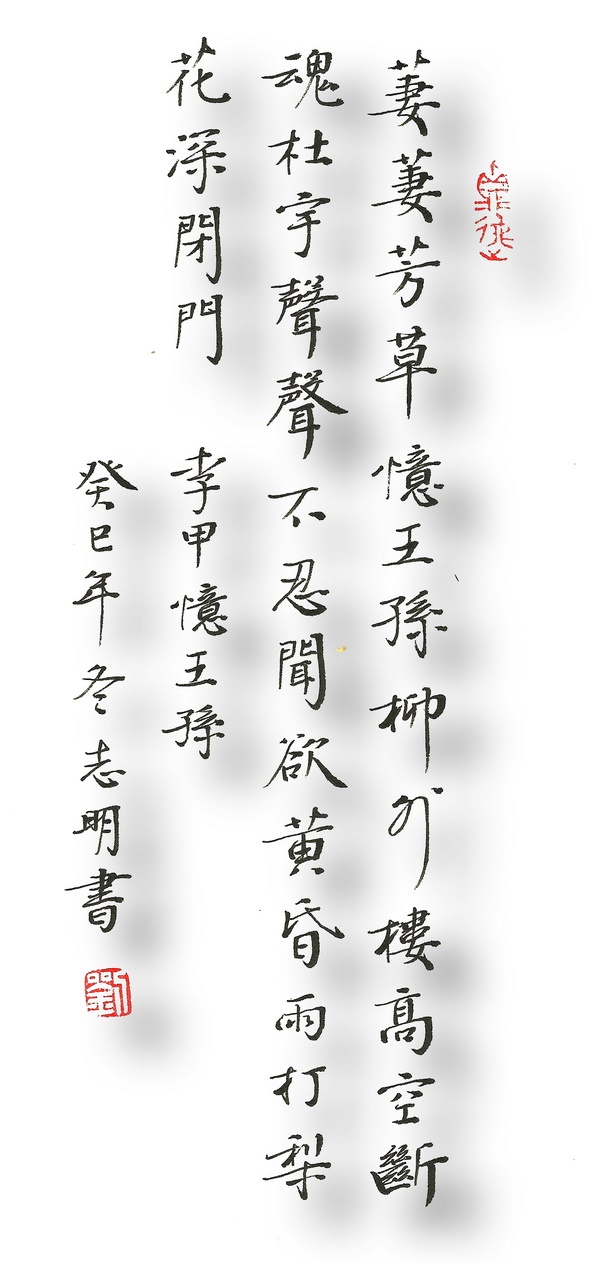 萋萋芳草憶王孫柳外樓高空斷
魂杜宇聲聲不忍聞欲黃昏雨打梨
花深閉門
李甲憶王孫
癸巳年冬志明書
劉